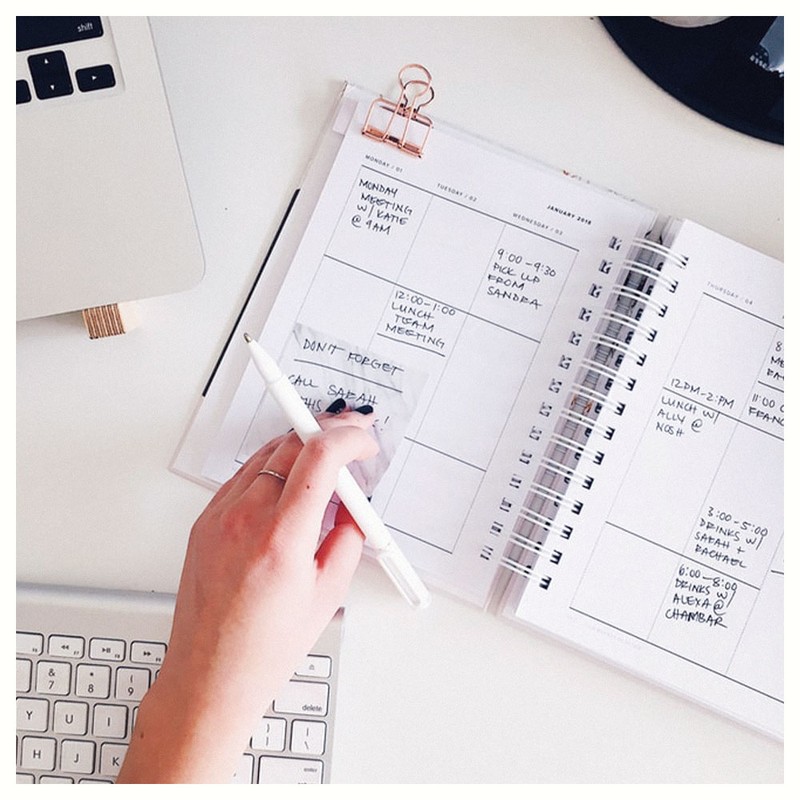 shift
MONDAY / 01
TUESDAY / 02
JANUARY 2018
WEDNESDAY / 03
MONDAY
MEETING
W/ KATIE
@ 9AM
9:00 - 9:30
PICK UP
FROM
SANDRA
12:00-1:00
LUNCH
TEAM
MEETING
DON'T FORGET
CALL SARAH
THURSDAY / 04
12PM-2:PM
LUNCH W/
ALLY @
NOSH
8
ME
11:00
3:00-5:00
DRINKS W/
SARAH +
RACHAEL
6:00-8:00
DRINKS W/
ALEXA @
CHAMBAR
& 7
* 8
( 9
Y U I
H J K
delete
} ]
| \
enter